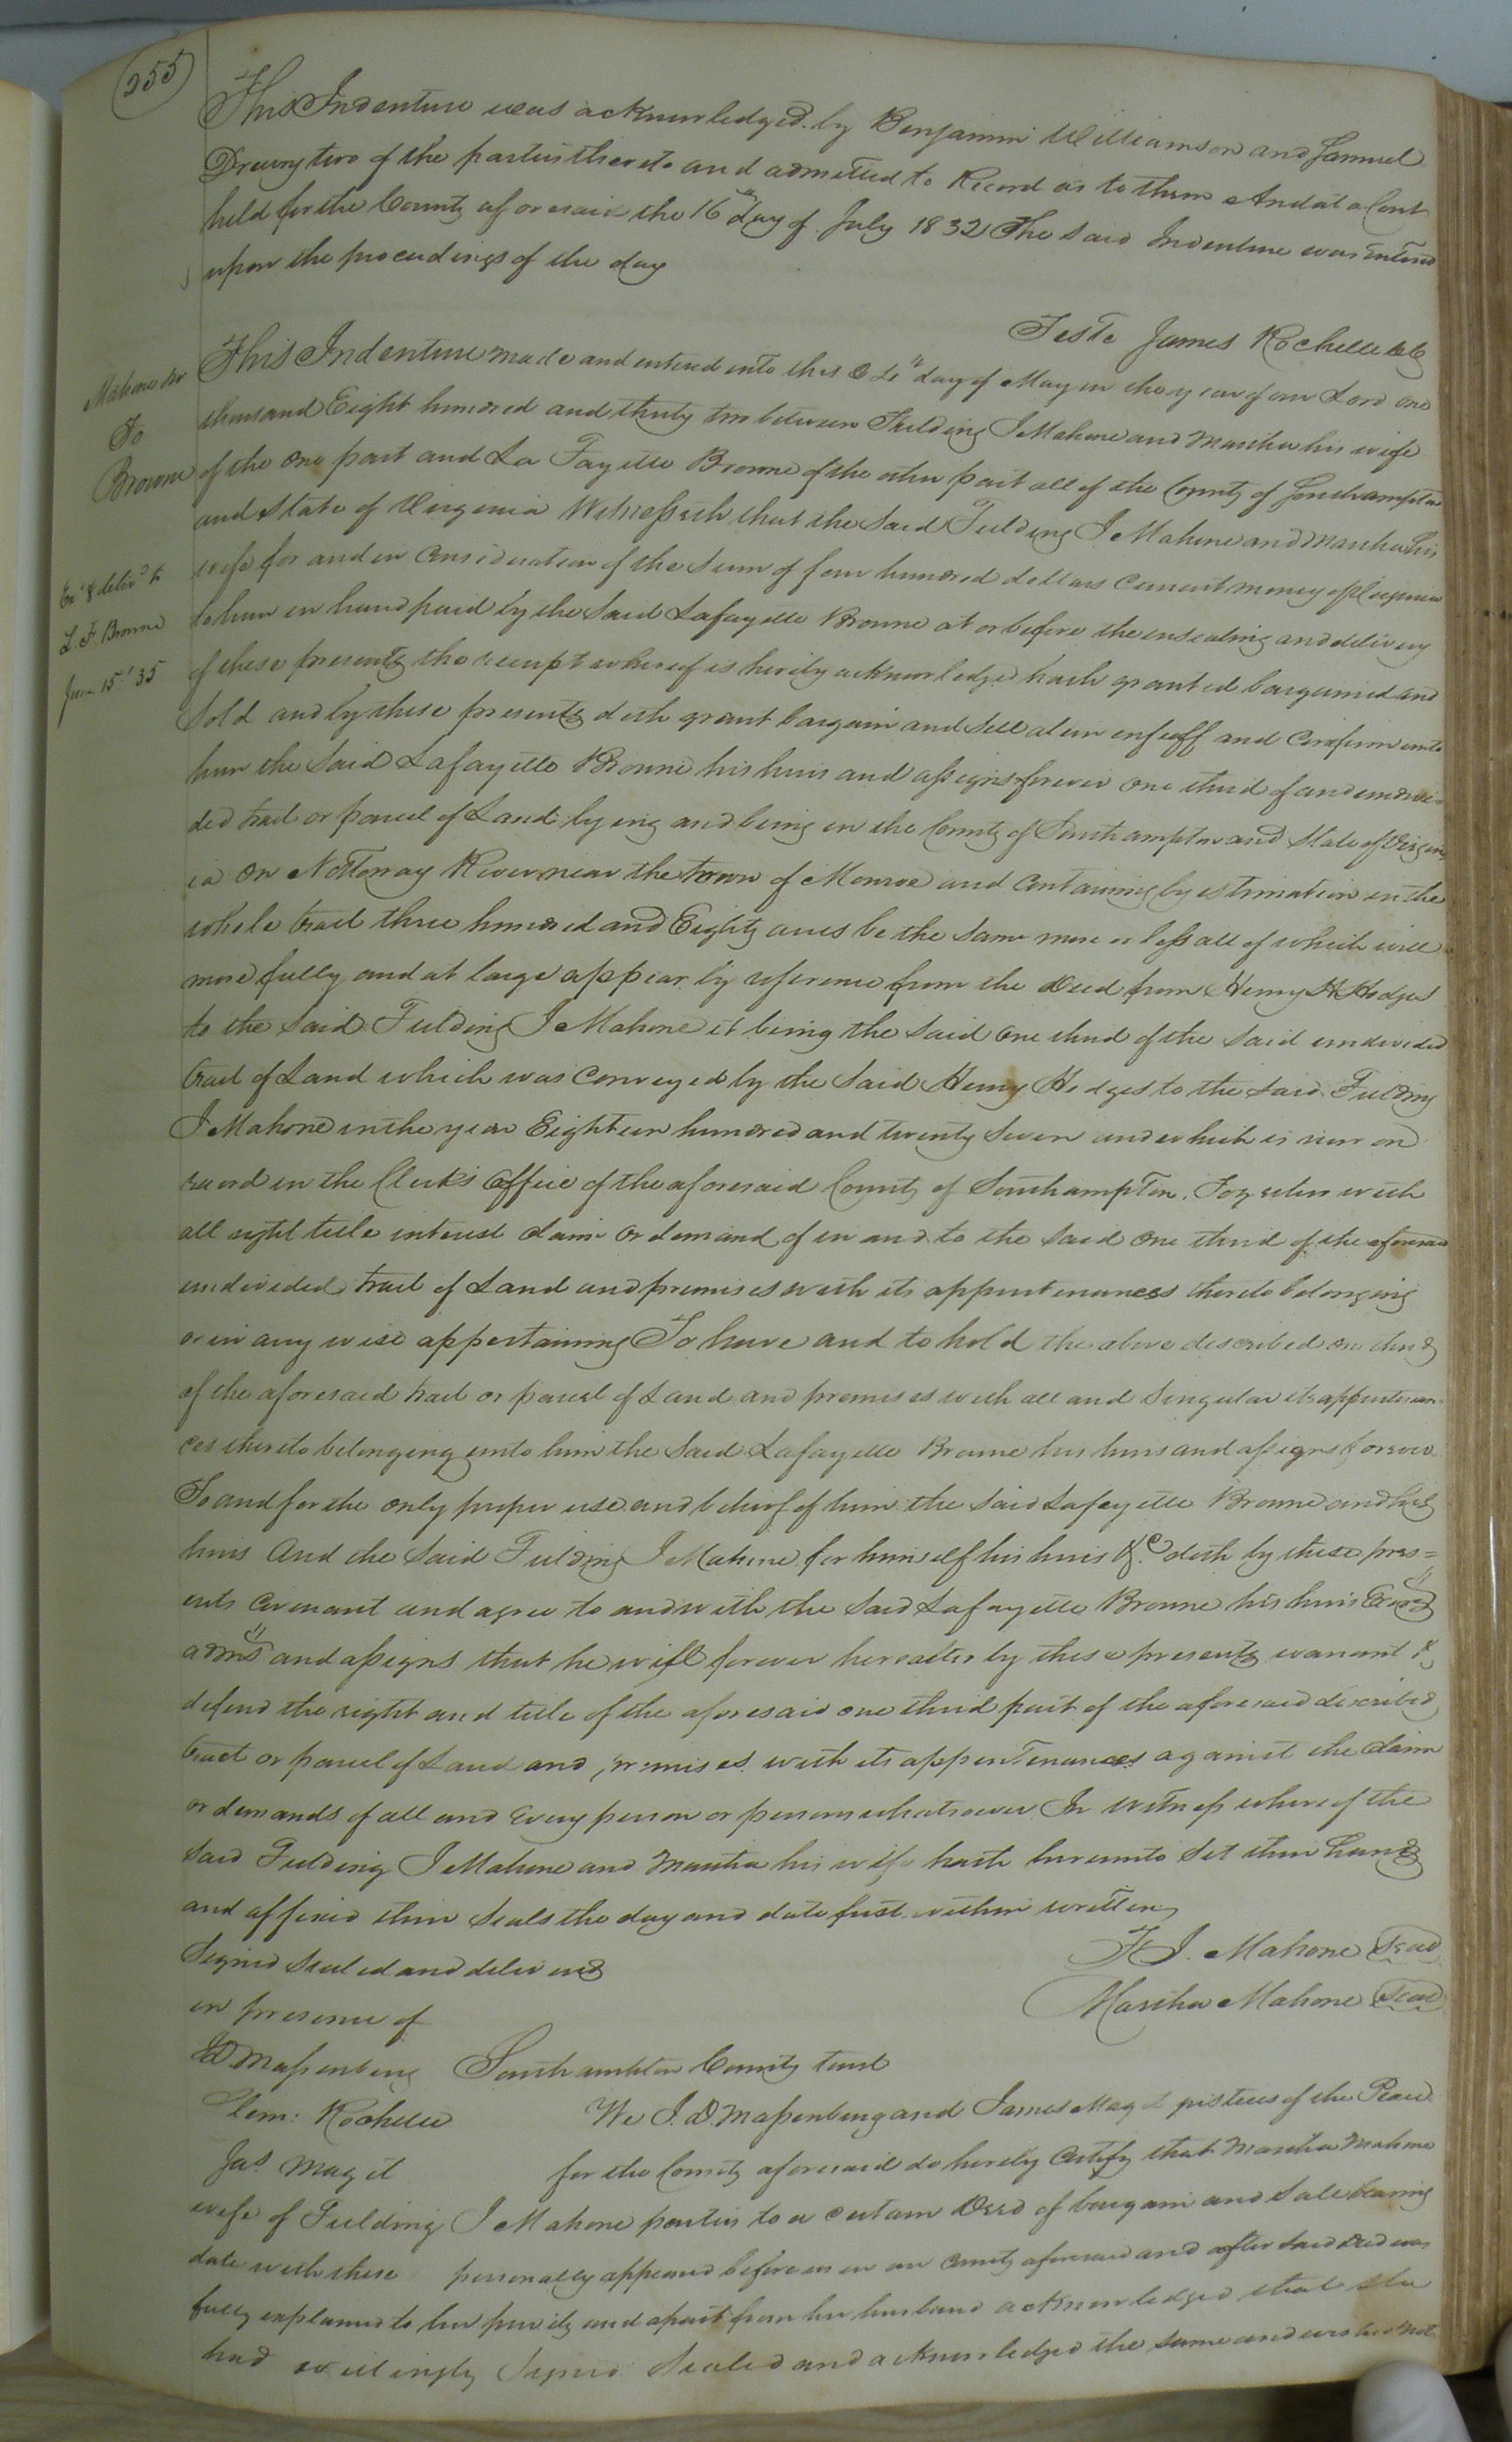 255
This Indenture was acknowledged by Benjamin Williamson and Samuel
Drewry two of the parties thereto and admitted to Record as to them And at a Court
held for the County aforesaid the 16th day of July 1832 The said Indenture was Entered
upon the proceedings of the day
Teste James Rochelle
Mahone &ux
To
Browne
Exd & delivd to
L. F. Browne
June 15th 35
This Indenture made and entered into this day of May in the year of our Lord one
thousand Eight hundred and thirty two between Fielding J Mahone and Martha his wife
of the one part and La Fayette Browne of the other part all of the County of Southampton
and State of Virginia Witnesseth that the said Fielding J Mahone and Martha his
wife for and in Consideration of the Sum of four hundred dollars Current money of Virginia
to him in hand paid by the said Lafayette Browne at or before the ensealing and delivery
of these presents the receipt whereof is hereby acknowledged hath granted bargained and
Sold and by these presents doth grant bargain and Sell alien enfeoff and Confirm unto
him the Said Lafayette Browne his heirs and assigns forever one third of an undivi-
ded tract or parcel of Land lying and being in the County of Southampton and State of Virgin
ia on Nottoway River near the town of Monroe and Containing by estimation in the
whole tract three hundred and Eighty acres be the Same more or less all of which will
more fully and at large appear by reference from the Deed from Henry H Hodges
to the said Fielding J Mahone it being the said one third of the said undivided
tract of Land which was Conveyed by the Said Henry Hodges to the Said Fielding
J Mahone in the year Eighteen hundred and twenty Seven and which is now on
record in the Clerk's Office of the aforesaid County of Southampton. Together with
all right title interest claim or demand of in and to the said one third of the aforesaid
undivided tract of Land and premises with its appurtenances thereto belonging
or in any wise appertaining To have and to hold the above described one third
of the aforesaid tract or parcel of Land and premises with all and Singular its appurtenan-
ces thereto belonging unto him the Said Lafayette Browne his heirs and assigns forever
To and for the only proper use and behoof of him the Said Lafayette Browne and his
heirs And the Said Fielding J Mahone for himself his heirs &c doth by these pres=
ents Covenant and agree to and with the Said Lafayette Browne his heirs Exors
admrs and assigns that he will forever hereafter by these presents warrant &
defend the right and title of the aforesaid one third part of the aforesaid described
tract or parcel of Land and premises with its appurtenances against the claim
or demands of all and Every person or persons whatsoever In witness whereof the
said Fielding J Mahone and Martha his wife hath hereunto Set their hands
and affixed their Seals the day and date first within written
Signed Sealed and delivered
in presence of
F J. Mahone Seal
Martha Mahone Seal
J D. Massenburg
Clem: Rochelle
Jas Magit
Southampton County towit
We J. D. Massenburg and James Magit justices of the Peace
for the County aforesaid do hereby Certify that Martha Mahone
wife of Fielding J Mahone parties to a certain Deed of bargain and Sale bearing
date with these personally appeared before us in our County aforesaid and after said deed was
fully explained to her privily and apart from her husband acknowledged that she
had willingly Signed Sealed and acknowledged the same and wished not